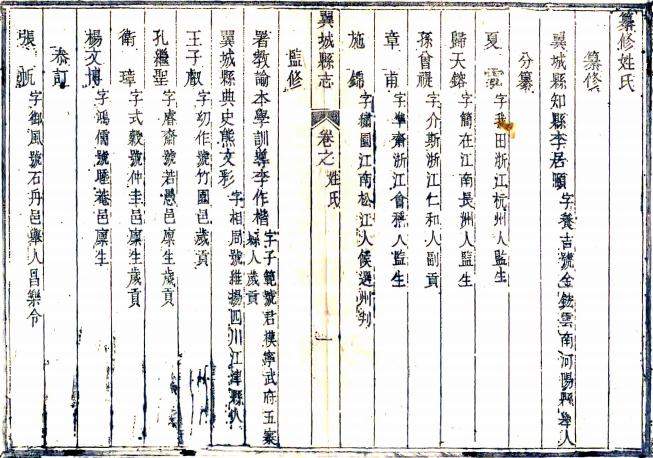 纂修姓氏
纂修
翼城縣知縣李居頤 字養吉號金鉉雲南河陽縣舉人
分纂
夏 字我田浙江杭州人監生
歸天鎔 字簡在江南長洲人監生
孫曾禔 字介斯浙江仁和人副貢
章甫 字準齋浙江會稽人監生
施鐇 字繡園江南松江人候選州判
翼城縣志 卷之 姓氏 一
監修
署教諭本學訓導李作楷 字子範號君模寧武府五寨縣人歲貢
翼城縣典史熊文彩 字相周號維揚四川江津縣人
王子叡 字幼作號竹園邑歲貢
孔繼聖 字睿齋號若愚邑廩生歲貢
衛璋 字式穀號仲圭邑廩生歲貢
楊文博 字鴻儒號睡菴邑廩生
叅訂
張 字御風號石丹邑舉人昌樂令